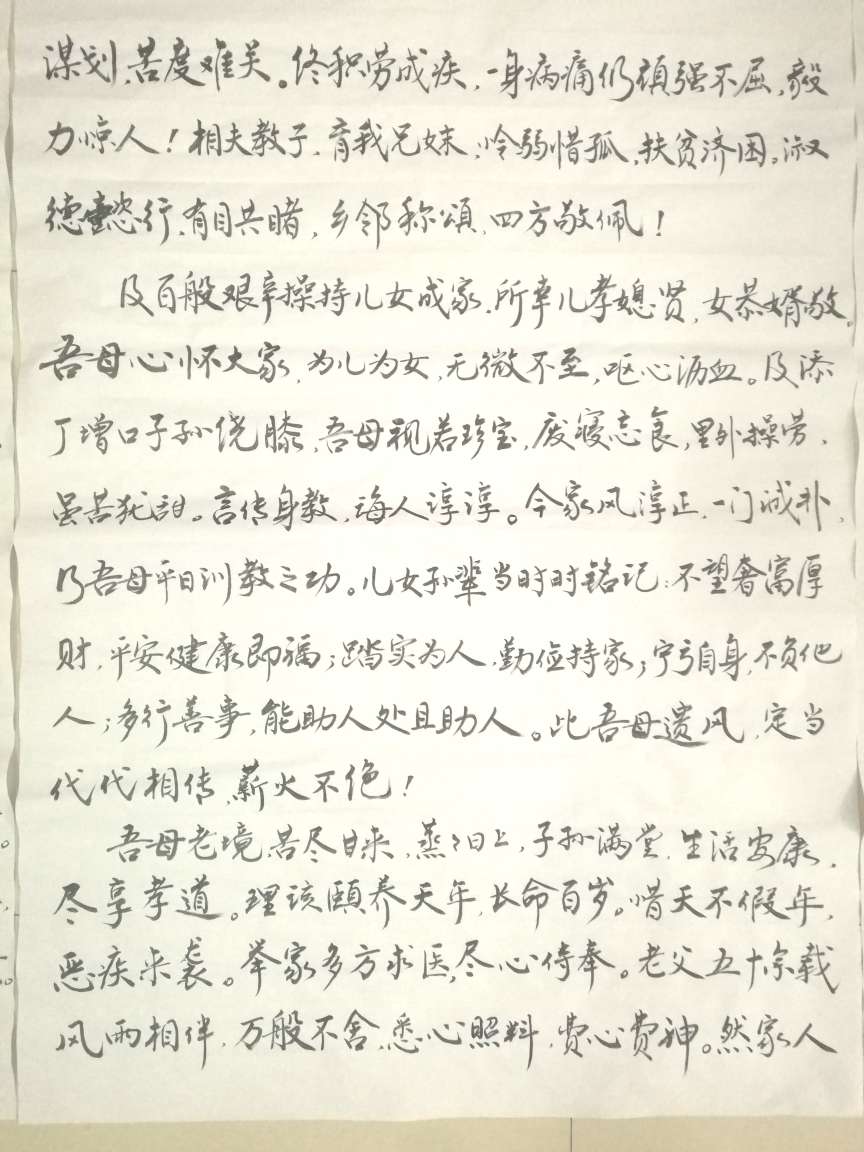 谋划,苦度难关。终积劳成疾,一身病痛仍顽强不屈,毅
力惊人!相夫教子,育我兄妹,怜弱惜孤,扶贫济困。淑
德懿行,有目共睹,乡邻称颂,四方敬佩!
及百般艰辛操持儿女成家,所幸儿孝媳贤,女恭婿敬。
吾母心怀大家,为儿为女,无微不至,呕心沥血。及添
丁增口子孙绕膝,吾母视若珍宝,废寝忘食,里外操劳,
虽苦犹甜。言传身教,诲人谆谆。今家风淳正,一门诚朴,
乃吾母平日训教之功。儿女孙辈当时时铭记:不望奢富厚
财,平安健康即福;踏实为人,勤俭持家;宁亏自身,不负他
人;多行善事,能助人处且助人。此吾母遗风,定当
代代相传,薪火不绝!
吾母老境,苦尽甘来,蒸々日上,子孙满堂,生活安康,
尽享孝道。理该颐养天年,长命百岁。惜天不假年,
恶疾来袭。举家多方求医,尽心侍奉。老父五十余载
风雨相伴,万般不舍,悉心照料,费心费神。然家人